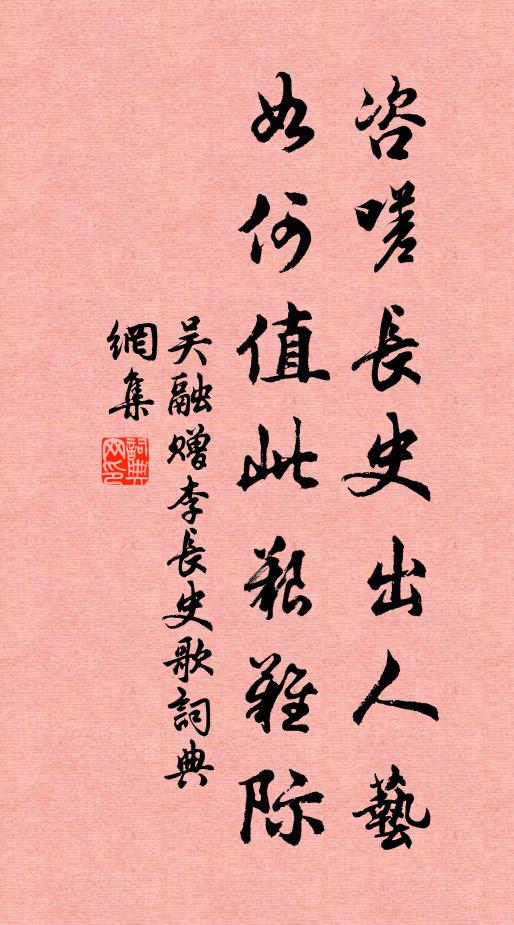 咨嗟長史出人藝
如何值此艱難际
吴融赠李長史歌詞典
網集
詞典網印